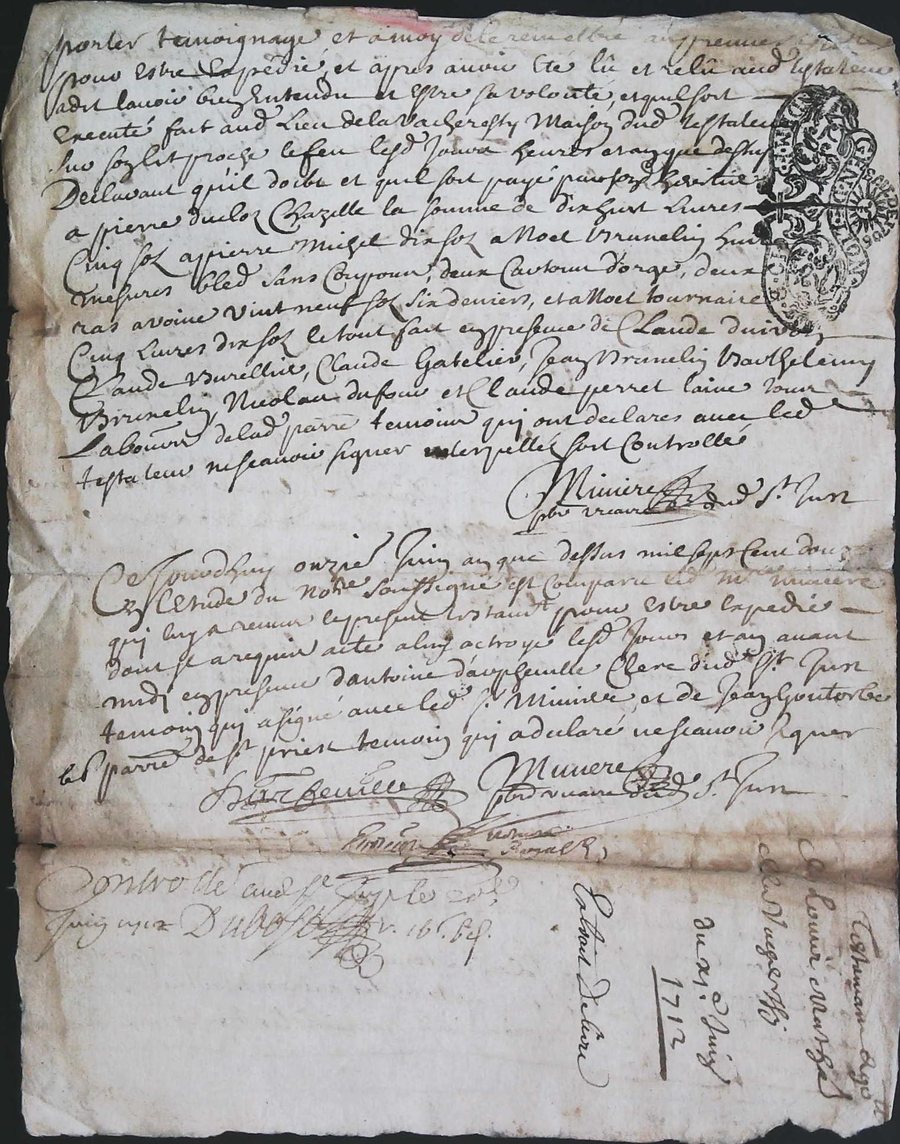 porter temoignage et a moy de le remettre au premier
pour estre expedié, et apres avoir eté lû et relû aud testateur
a dit lavoir bien Entendu et Estre sa volonté, et quil soit
executé fait aud Lieu de la Vacheresty Maison dud testateur
sur son lit proche le feu lesd Jour heures et an que dessus
Declarant quil doibt et quil soit payé par son heritier
a pierre ducloz Chazelle la somme de dix huit Livres
Cinq sol a pierre Michel dix sol a Noel Brunelin huit
mesures bled sans Coupour deux Cartour d'orge, deux
ras avoine vint neuf sol six deniers, et a Noel tournaire
Cinq Livres dix sol le tout fait en presence de Claude
Claude Burellier, Claude Gatelier, Jean Brunelin Barthelemy
Brunelin, Nicolas dufour et Claude perret laine tour
Laboûrs delad parre temoins qui ont declares avec led
testateur ne scavoir signer interpellé soit Controllé
Miniere
pbre vicaire dud St Just
Ce Jourdhuy onzie Juin an que dessus mil sept Cent douze
En LEtude du Notre Soussigné est Comparu led mre miniere
qui luy a remis le present testamt pour estre expedié
dont il a requis acte a luy octroyé lesd Jour et an avant
midi en presence d'antoine dauphenille Clerc dud St Just
temoin qui a signé avec led Sr Miniere et de Jean Goutorbe
la parre de St priest temoin qui a declaré ne scavoir signer
Miniere
pbre vicaire dud St Just
Controllé aud St Just le
Juin 1712 Dubost
Testament
de Louis
de la Vacheresty
du xi Juin
1712
Extrait delivré
GENERATION